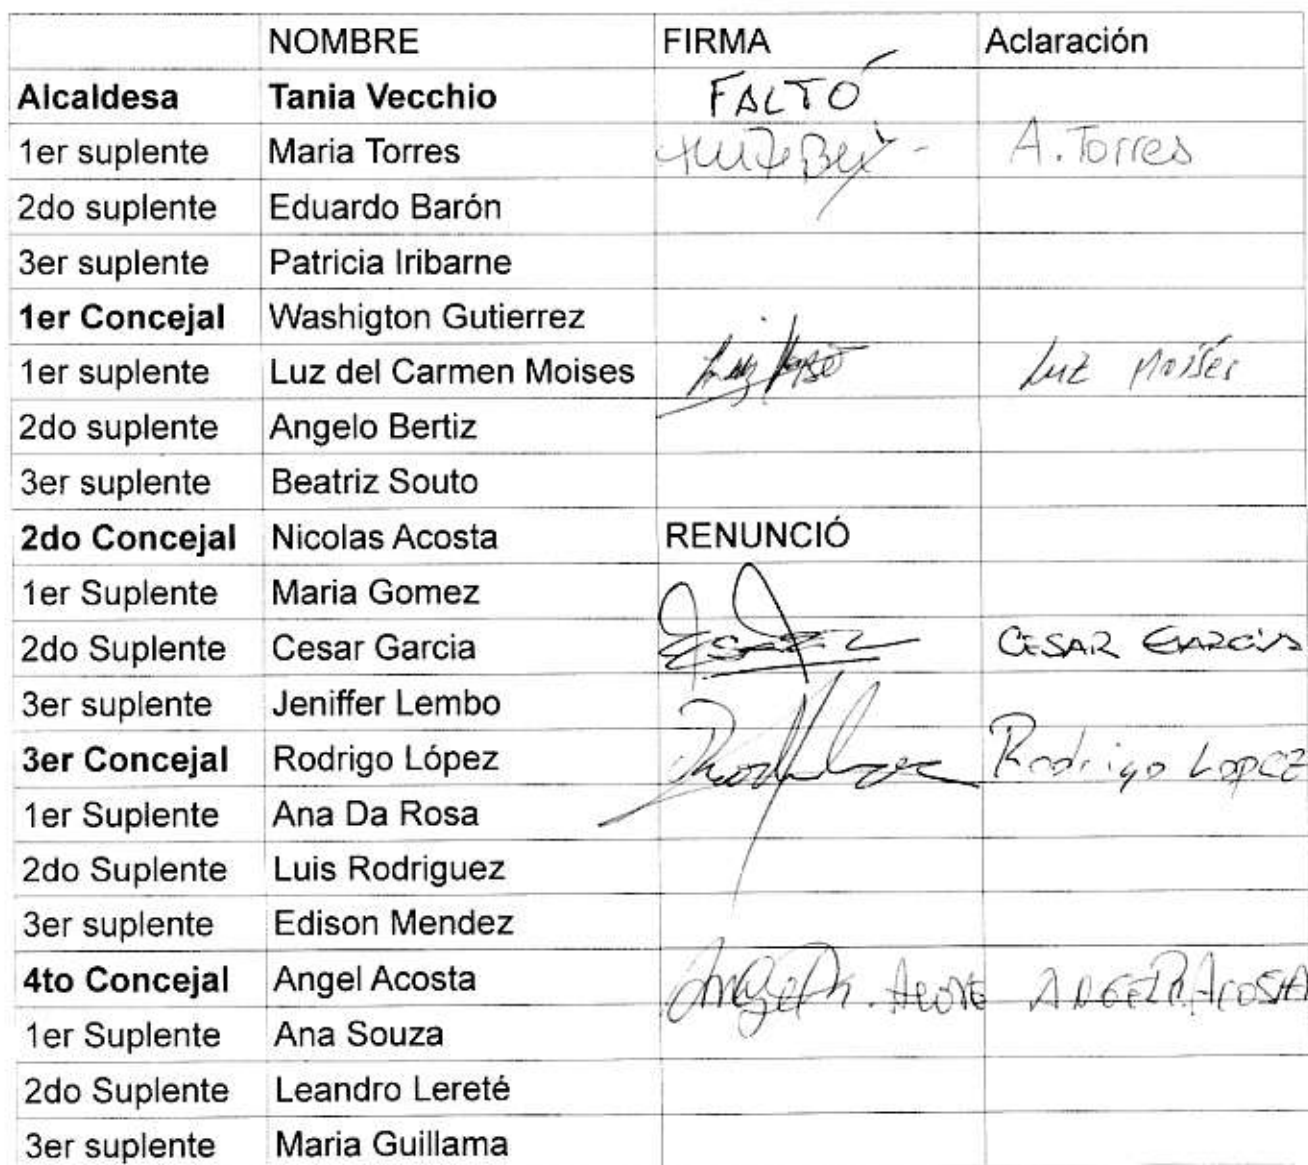 NOMBRE FIRMA Aclaración
Alcaldesa Tania Vecchio FALTÓ
1er suplente Maria Torres A. Torres
2do suplente Eduardo Barón
3er suplente Patricia Iribarne
1er Concejal Washigton Gutierrez
1er suplente Luz del Carmen Moises Luz Moisés
2do suplente Angelo Bertiz
3er suplente Beatriz Souto
2do Concejal Nicolas Acosta RENUNCIÓ
1er Suplente Maria Gomez
2do Suplente Cesar Garcia CESAR GARCIA
3er suplente Jeniffer Lembo
3er Concejal Rodrigo López Rodrigo Lopez
1er Suplente Ana Da Rosa
2do Suplente Luis Rodriguez
3er suplente Edison Mendez
4to Concejal Angel Acosta ANGEL R. ACOSTA
1er Suplente Ana Souza
2do Suplente Leandro Lereté
3er suplente Maria Guillama